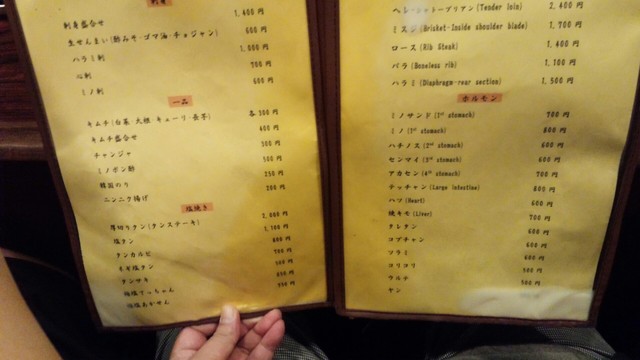 刺身
刺身盛合せ 1,400 円
生せんまい(酢みそ・ゴマ油・チョジャン) 600 円
ハラミ刺 1,000 円
心刺 700 円
ミノ刺 600 円
一品
キムチ(白菜 大根 キューリ・長芋) 各300 円
キムチ盛合せ 600 円
チャンジャ 500 円
ミノポン酢 500 円
韓国のり 250 円
ニンニク揚げ 200 円
塩焼き
厚切りタン(タンステーキ) 2,000 円
塩タン 1,100 円
タンカルビ 800 円
ネギ塩タン
タンサキ
塩てっちゃん
塩あかせん
ヘレ・シャトーブリアン(Tender loin) 2,400 円
ミスジ(Bricket-Inside shoulder blade) 1,700 円
ロース(Rib Steak) 1,400 円
バラ(Boneless rib) 1,100 円
ハラミ(Diaphragm-rear section) 1,500 円
ホルモン
ミノサンド(1st stomach) 700 円
ミノ(1st stomach) 800 円
ハチノス(2nd stomach) 600 円
センマイ(3rd stomach) 600 円
アカセン(4th stomach) 700 円
テッチャン(Large intestine) 800 円
ハツ(Heart) 600 円
焼キモ(Liver) 700 円
タレタン 600 円
コプチャン 600 円
ツラミ 600 円
コリコリ 500 円
ウルテ 500 円
ヤン